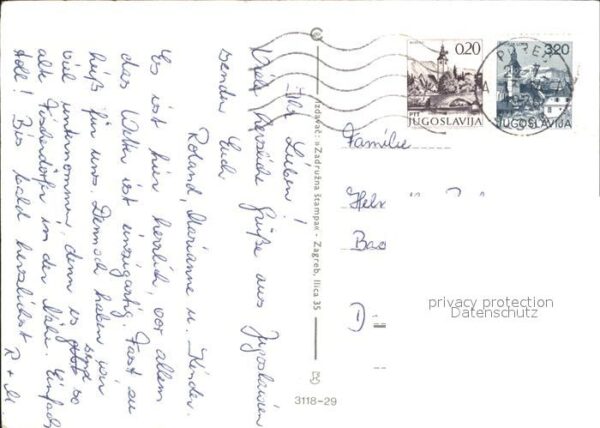 Ihr Lieben!
Viele herzliche Grüße aus Jugoslawien
senden Euch
Roland, Marianne u. Kinder.
Es ist hier herrlich, vor allem
das Wetter ist einzigartig. Fast zu
heiß für uns. Dennoch haben wir
viel unternommen, denn es sind so
alte Fischerdörfer in der Nähe. Einfach
toll! Bis bald herzlichst R + M
Izdavač: »Zadružna štampa« - Zagreb, Ilica 35
3118-29
0,20
PTT
JUGOSLAVIJA
3,20
JUGOSLAVIJA
Familie
privacy protection
Datenschutz